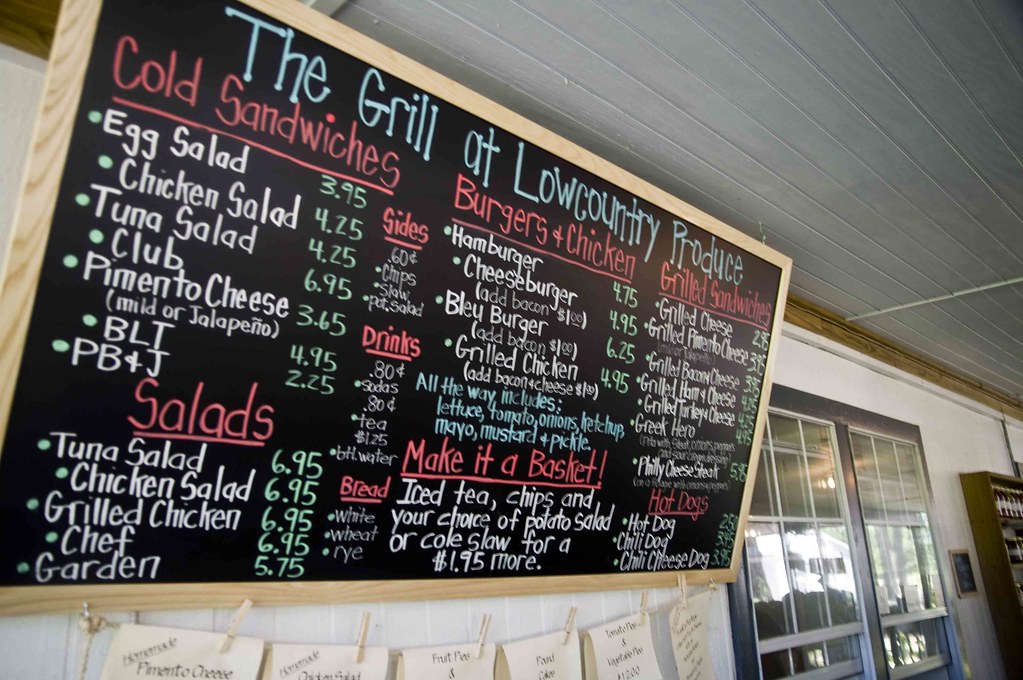 The Grill at Lowcountry Produce
Cold Sandwiches
Egg Salad 3.95
Chicken Salad 4.25
Tuna Salad 4.25
Club 6.95
Pimento Cheese 3.65
(mild or Jalapeño)
BLT 4.95
PB&J 2.25
Salads
Tuna Salad 6.95
Chicken Salad 6.95
Grilled Chicken 6.95
Chef 6.95
Garden 5.75
Sides
.60¢
chips
slaw
pot. salad
Drinks
.80¢
sodas
.80¢
tea
$1.25
btl. water
Bread
white
wheat
rye
Burgers & Chicken
Hamburger 4.75
Cheeseburger 4.95
(add bacon $1.00)
Bleu Burger 6.25
(add bacon $1.00)
Grilled Chicken 4.95
(add bacon & cheese $1.50)
All the way, includes:
lettuce, tomato, onions, ketchup,
mayo, mustard & pickle.
Make it a Basket!
Iced tea, chips and
your choice of potato salad
or cole slaw for a
$1.95 more.
Grilled Sandwiches
Grilled Cheese 2.95
Grilled Pimento Cheese 3.95
Grilled Bacon & Cheese
Grilled Ham & Cheese
Grilled Turkey & Cheese
Greek Hero 4.95
Philly Cheese Steak 5.95
Hot Dogs
Hot Dog
Chili Dog
Chili Cheese Dog 3.95
Homemade
Pimento Cheese
Homemade
Chicken Salad
Fruit Pies
&
Pound
Cakes
Tomato Pies
&
Vegetable Pies
$12.00